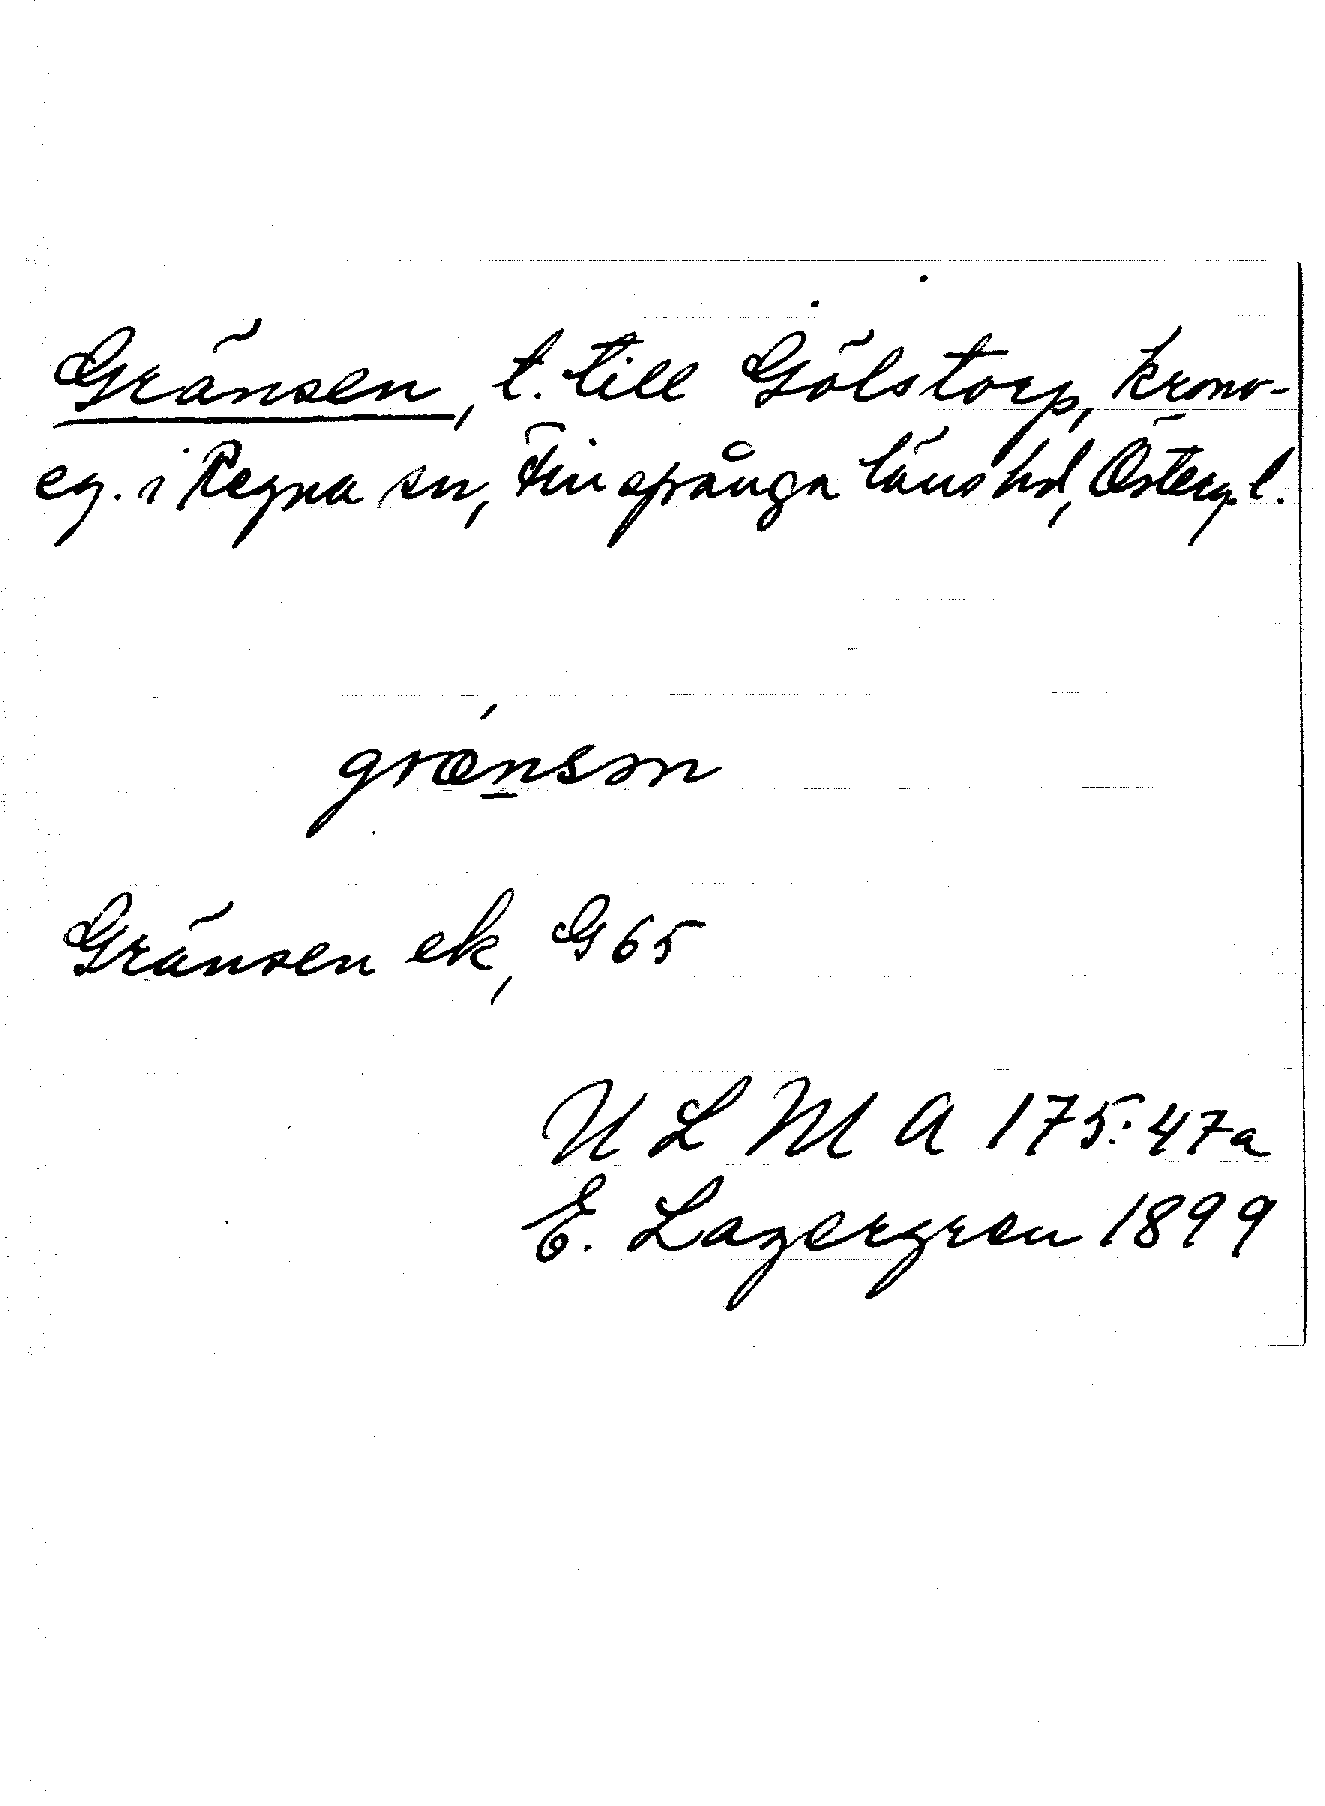 Gränsen, t. till Gölstorp, krono-
eg. i Regna sn, Finspånga läns hd, Östergl.
grǽns̱ən
Gränsen ek, G 65
U L M A 175:47a
E. Lagergren 1899